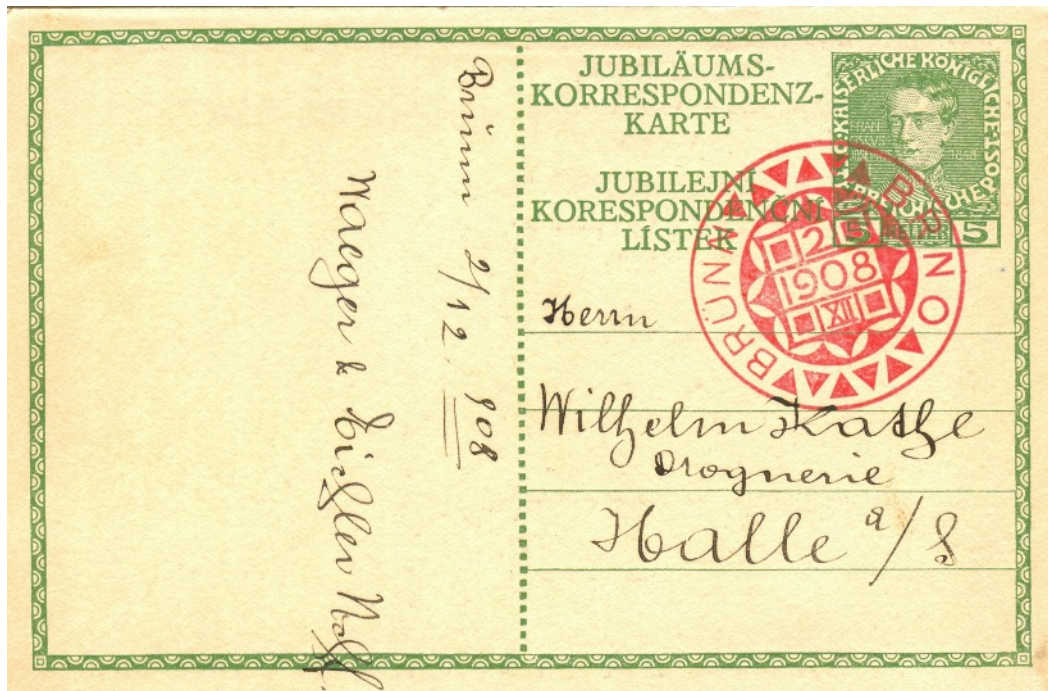 JUBILÄUMS-
KORRESPONDENZ-
KARTE
JUBILEJNÍ
KORESPONDENČNÍ
LÍSTEK
KAISERLICHE KÖNIGLICHE POST
FRAN
CISCVS
IOSEPH
1848
5 5
BRÜNN BRNO
2
1908
XII
Herrn
Wilhelm Kathe
Drognerie
Halle a/S
Brünn 2/12. 908
Waeger & Eichler